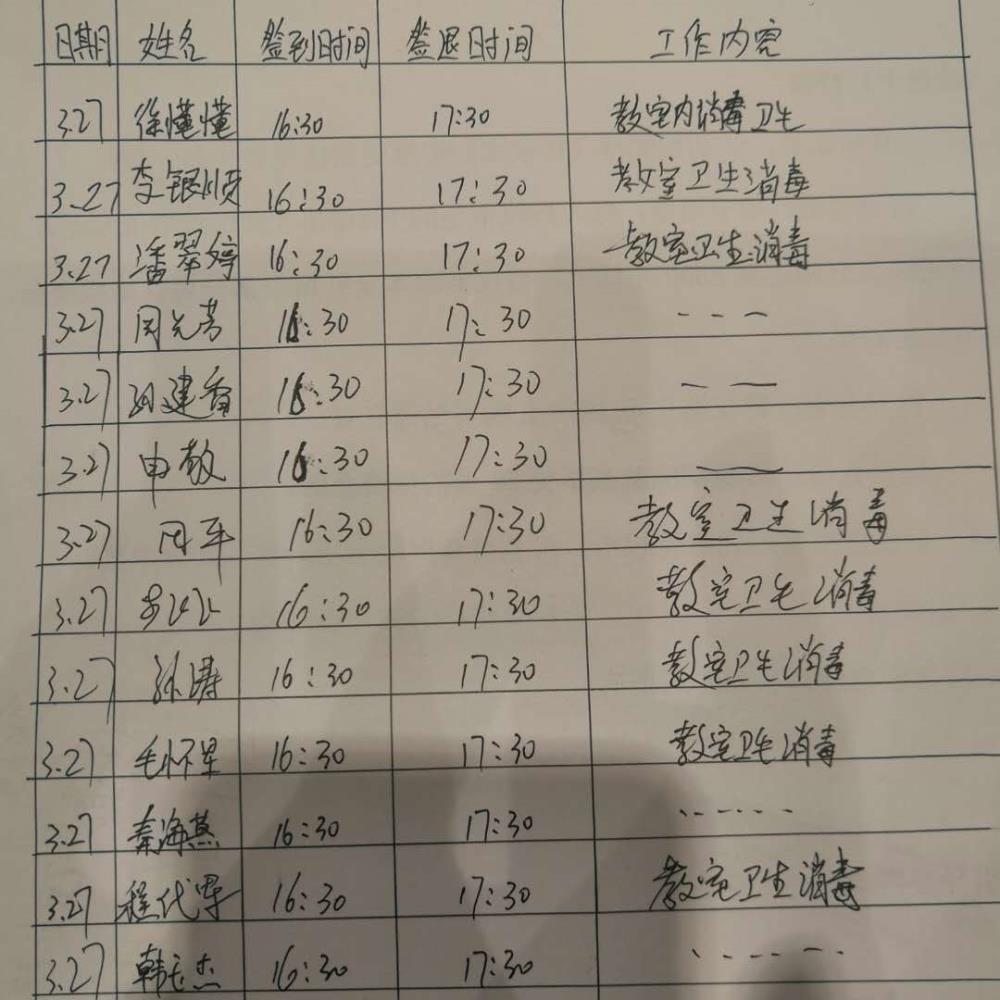 日期 姓名 签到时间 签退时间 工作内容
3.27 徐懂懂 16:30 17:30 教室内消毒卫生
3.27 李银顺 16:30 17:30 教室卫生消毒
3.27 潘翠婷 16:30 17:30 教室卫生消毒
3.27 周允芳 16:30 17:30 ---
3.27 孙建香 16:30 17:30 --
3.27 申敏 16:30 17:30 —
3.27 周军 16:30 17:30 教室卫生消毒
3.27 16:30 17:30 教室卫生消毒
3.27 孙涛 16:30 17:30 教室卫生消毒
3.27 毛怀星 16:30 17:30 教室卫生消毒
3.27 秦海燕 16:30 17:30 -----
3.27 程代军 16:30 17:30 教室卫生消毒
3.27 韩玉杰 16:30 17:30 -----